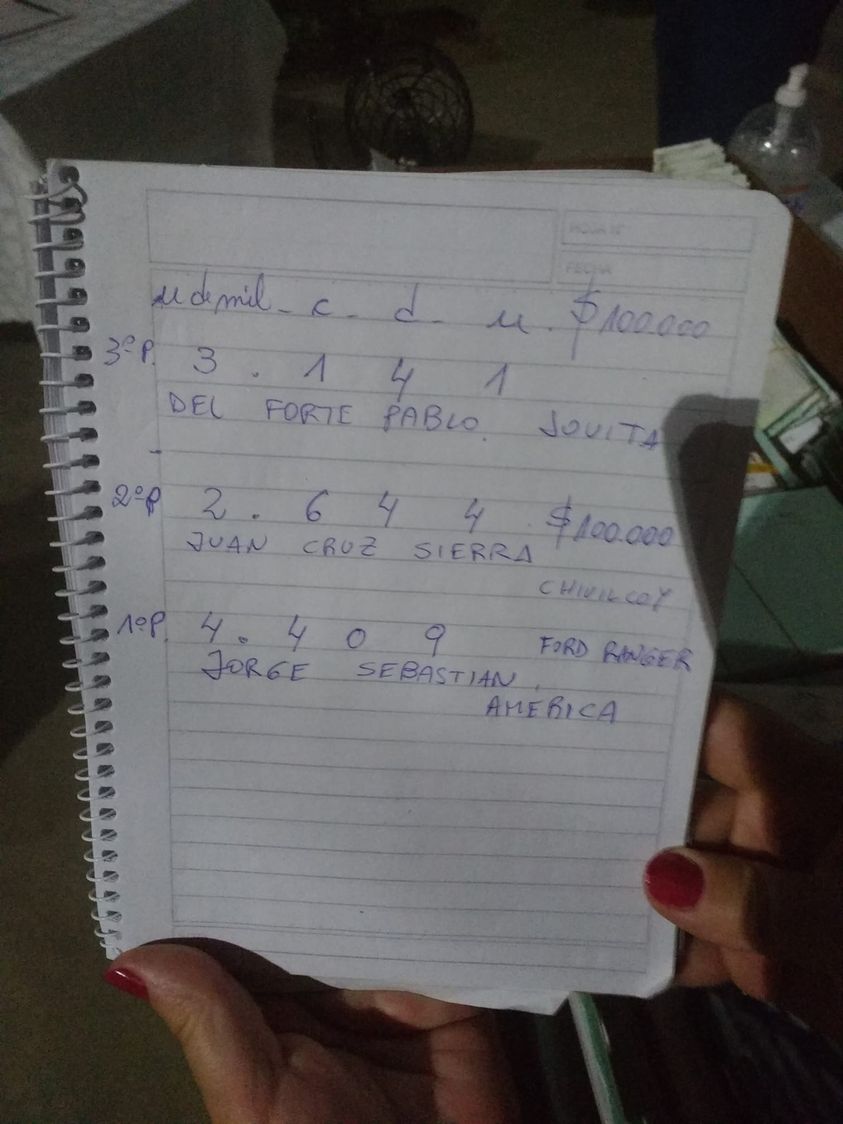 u de mil - c - d - u . $100.000
3º P. 3 . 1 4 1
DEL FORTE PABLO. JOVITA
2º P. 2 . 6 4 4 . $100.000
JUAN CRUZ SIERRA
CHIVILCOY
1º P. 4 . 4 0 9 FORD RANGER
JORGE SEBASTIAN.
AMERICA
FECHA